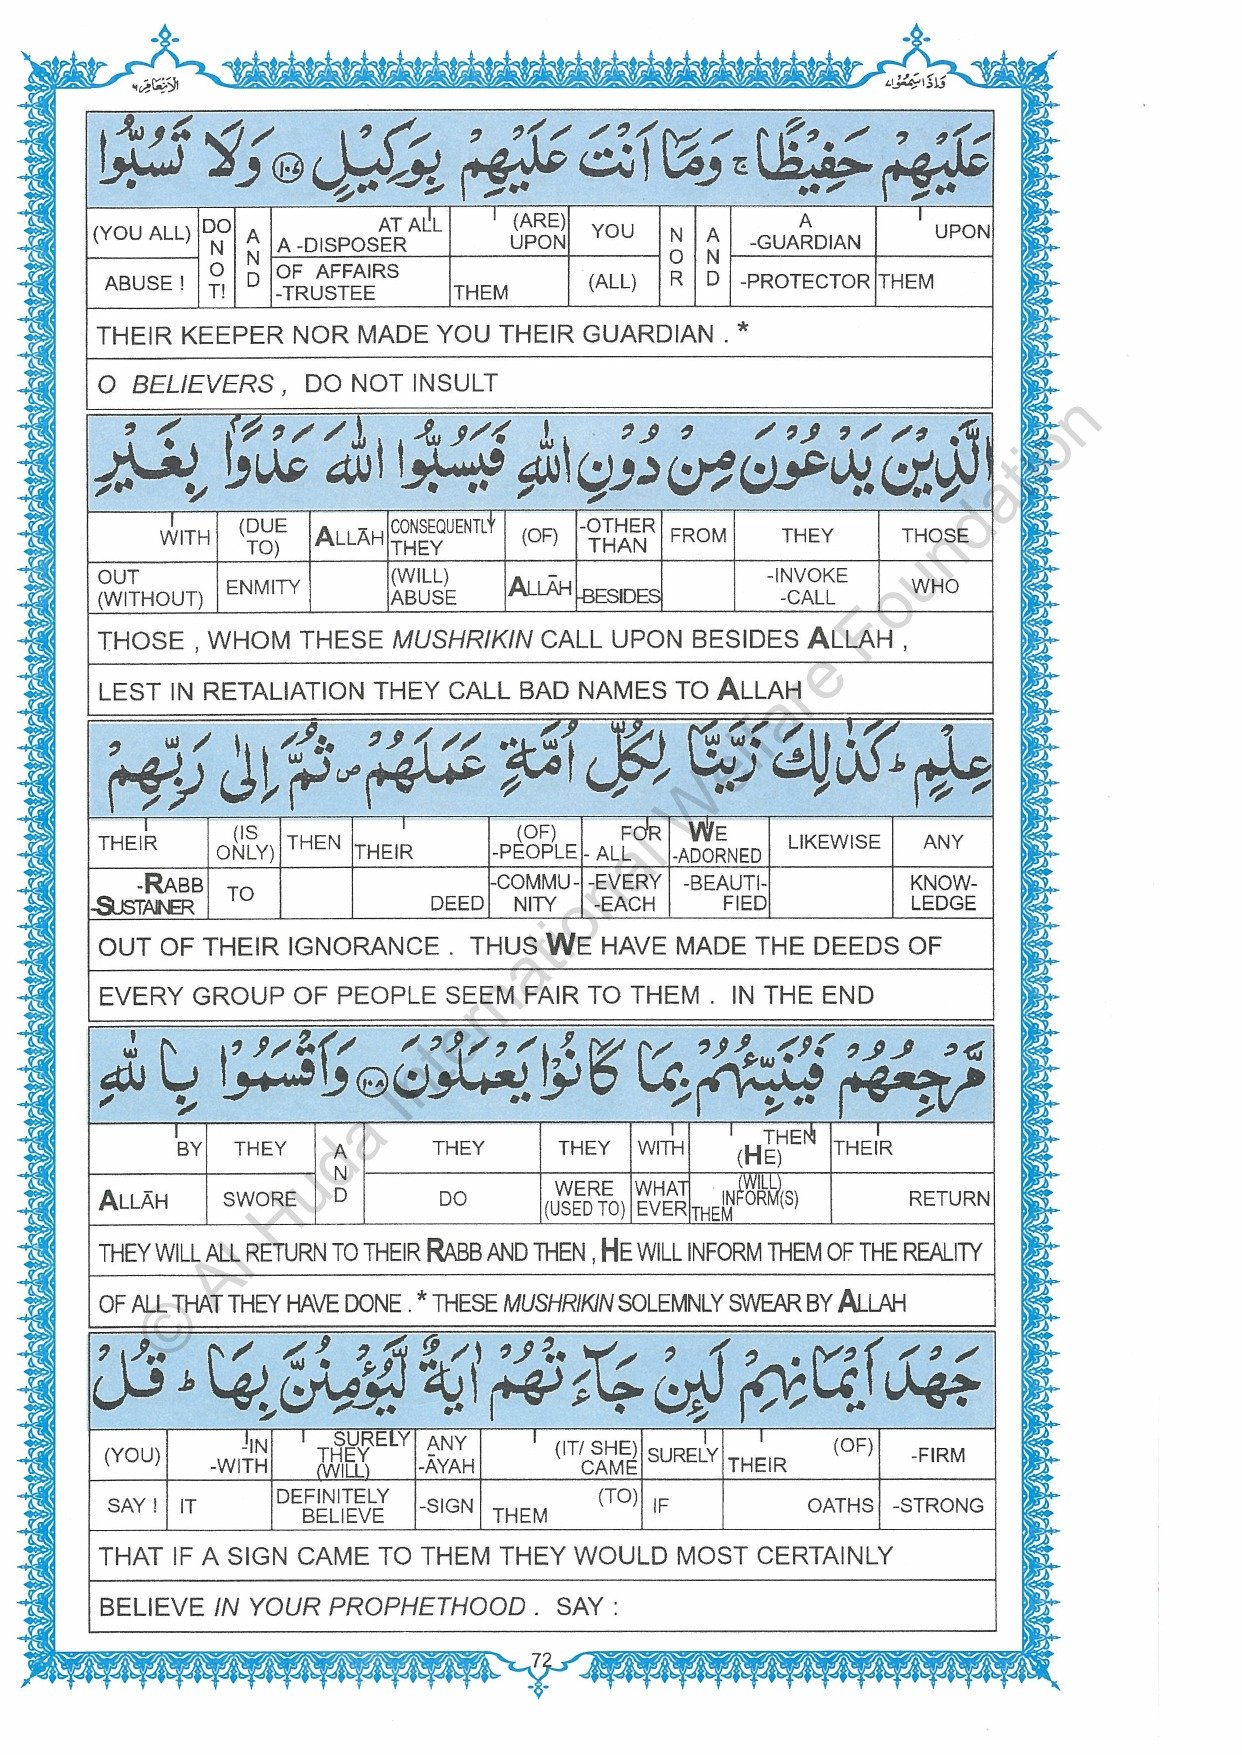 الانعام ٦
واذا سمعوا ٧
عَلَيْهِمْ حَفِيْظًا ۚ وَمَآ اَنْتَ عَلَيْهِمْ بِوَكِيْلٍ ﴿۱۰۷﴾ وَلَا تَسُبُّوا
(YOU ALL) DO NOT! AND AT ALL A -DISPOSER (ARE) UPON YOU NOR AND A -GUARDIAN UPON
ABUSE ! OF AFFAIRS -TRUSTEE THEM (ALL) -PROTECTOR THEM
THEIR KEEPER NOR MADE YOU THEIR GUARDIAN . *
O BELIEVERS , DO NOT INSULT
الَّذِيْنَ يَدْعُوْنَ مِنْ دُوْنِ اللّٰهِ فَيَسُبُّوا اللّٰهَ عَدْوًۢا بِغَيْرِ
WITH (DUE TO) ALLĀH CONSEQUENTLY THEY (OF) -OTHER THAN FROM THEY THOSE
OUT (WITHOUT) ENMITY (WILL) ABUSE ALLĀH -BESIDES -INVOKE -CALL WHO
THOSE , WHOM THESE MUSHRIKIN CALL UPON BESIDES ALLAH ,
LEST IN RETALIATION THEY CALL BAD NAMES TO ALLAH
عِلْمٍ ؕ كَذٰلِكَ زَيَّنَّا لِكُلِّ اُمَّةٍ عَمَلَهُمْ ۪ ثُمَّ اِلٰى رَبِّهِمْ
THEIR (IS ONLY) THEN THEIR (OF) -PEOPLE FOR - ALL WE -ADORNED LIKEWISE ANY
-RABB -SUSTAINER TO DEED -COMMU- NITY -EVERY -EACH -BEAUTI- FIED KNOW- LEDGE
OUT OF THEIR IGNORANCE . THUS WE HAVE MADE THE DEEDS OF
EVERY GROUP OF PEOPLE SEEM FAIR TO THEM . IN THE END
مَّرْجِعُهُمْ فَيُنَبِّئُهُمْ بِمَا كَانُوْا يَعْمَلُوْنَ ﴿۱۰۸﴾ وَاَقْسَمُوْا بِاللّٰهِ
BY THEY AND THEY THEY WITH THEN (HE) THEIR
ALLĀH SWORE DO WERE (USED TO) WHAT EVER (WILL) INFORM(S) THEM RETURN
THEY WILL ALL RETURN TO THEIR RABB AND THEN , HE WILL INFORM THEM OF THE REALITY
OF ALL THAT THEY HAVE DONE . * THESE MUSHRIKIN SOLEMNLY SWEAR BY ALLAH
جَهْدَ اَيْمَانِهِمْ لَئِنْ جَآءَتْهُمْ اٰيَةٌ لَّيُؤْمِنُنَّ بِهَا ؕ قُلْ
(YOU) -IN -WITH SURELY THEY (WILL) ANY -ĀYAH (IT/ SHE) CAME SURELY THEIR (OF) -FIRM
SAY ! IT DEFINITELY BELIEVE -SIGN (TO) THEM IF OATHS -STRONG
THAT IF A SIGN CAME TO THEM THEY WOULD MOST CERTAINLY
BELIEVE IN YOUR PROPHETHOOD . SAY :
72
© Al Huda International Welfare Foundation